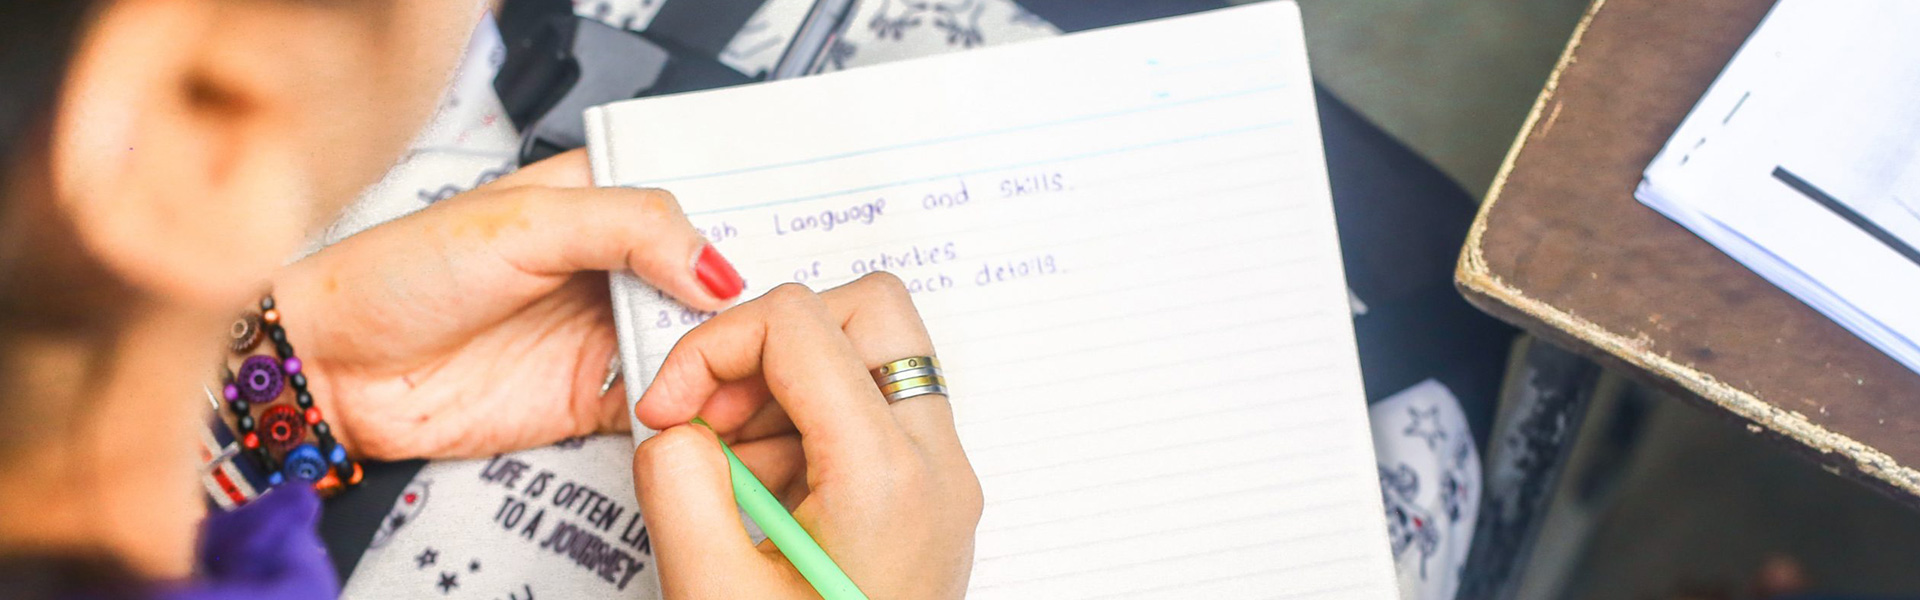 Language and skills.
of activities
each details.
LIFE IS OFTEN
TO A JOURNEY